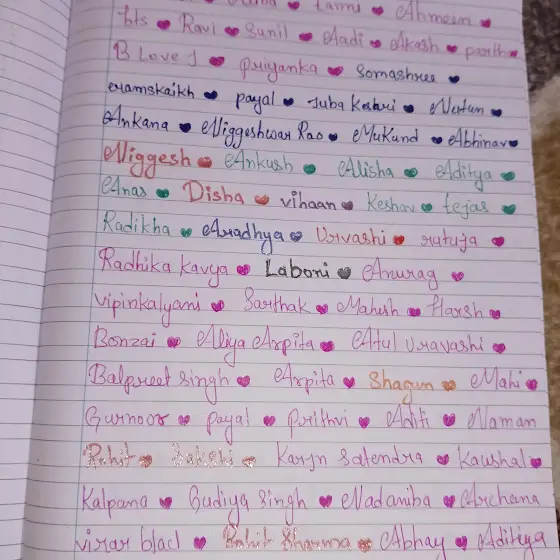 Laxmi ♥ Ahmeem ♥
bts ♥ Ravi ♥ Sunil ♥ Aadi ♥ Akash ♥ parth ♥
B Love J ♥ priyanka ♥ Somashree ♥
eramskaikh ♥ payal ♥ Juba Keshri ♥
Ankana ♥ Niggeshwar Rao ♥ Mukund ♥ Abhinav ♥
Niggesh ♥ Ankush ♥ Alisha ♥ Aditya ♥
Anas ♥ Disha ♥ vihaan ♥ Keshav ♥ tejas ♥
Radikha ♥ Aradhya ♥ Urvashi ♥ rutuja ♥
Radhika kavya ♥ Laboni ♥ Anurag ♥
vipinkalyani ♥ Sarthak ♥ Mahesh ♥ Harsh ♥
Bonzai ♥ Aliya Arpita ♥ Atul Uravashi ♥
Balpreet Singh ♥ Arpita ♥ Shagun ♥ Mahi ♥
Gurnoor ♥ payal ♥ Prithvi ♥ Aditi ♥ Naman
Rohit ♥ Bakshi ♥ Karjn Satendra ♥ Kaushal ♥
Kalpana ♥ Gudiya Singh ♥ Nadaniba ♥ Archana
virar blacl ♥ Rohit Sharma ♥ Abhay ♥ Aditiya